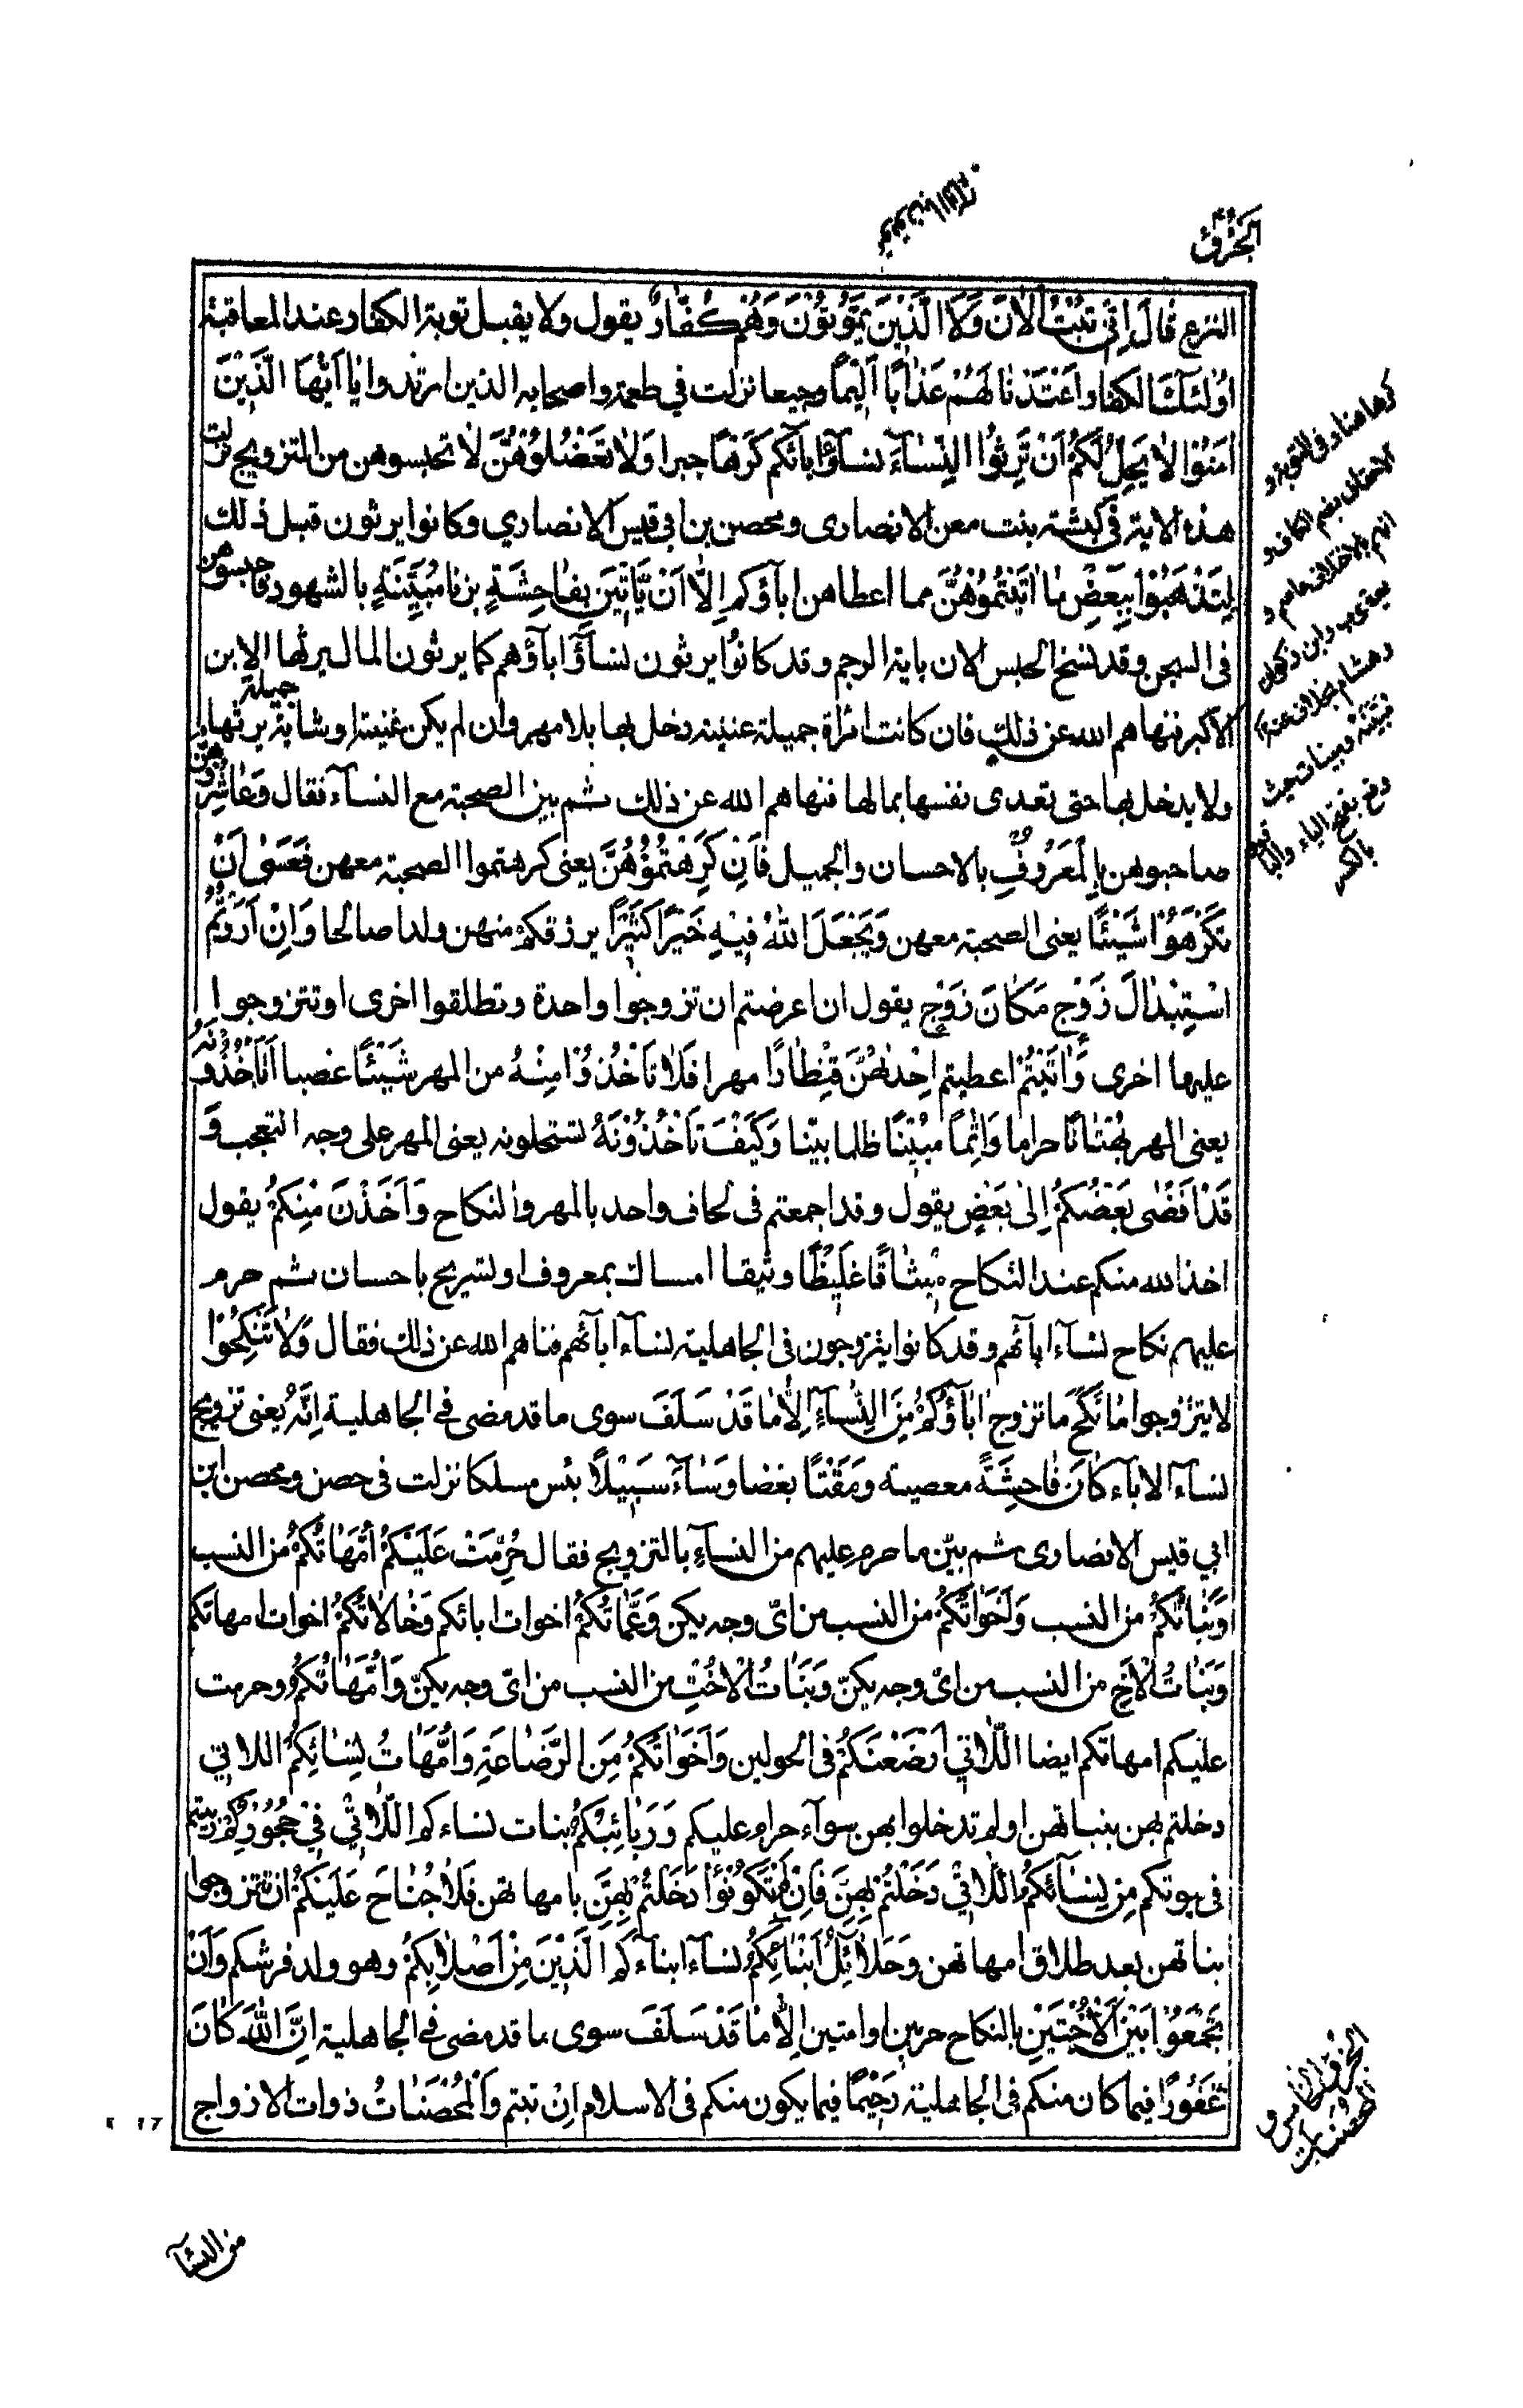 النزع قَالَ إِنِّي تُبْتُ الْاٰنَ وَلَا الَّذِيْنَ يَمُوْتُوْنَ وَهُمْ كُفَّارٌ يقول ولا يقبل توبة الكفار عند المعاقبة
اُولٰئِكَ الكفار اَعْتَدْنَا لَهُمْ عَذَابًا اَلِيْمًا وجيعا نزلت في طعمة واصحابه الذين ارتدوا يٰا اَيُّهَا الَّذِيْنَ
اٰمَنُوْا لَا يَحِلُّ لَكُمْ اَنْ تَرِثُوا النِّسَاۤءَ نساۤء اٰبائكم كَرْهًا جبرا وَلَا تَعْضُلُوْهُنَّ لا تحبسوهن من التزويج نزلت
هذه الاية في كبشة بنت معن الانصارى ومحصن بن ابي قيس الانصاري وكانوا يرثون قبل ذلك
لِتَذْهَبُوْا بِبَعْضِ مَا اٰتَيْتُمُوْهُنَّ مما اعطاهن اباؤكم اِلَّا اَنْ يَّاْتِيْنَ بِفَاحِشَةٍ بزنا مُبَيِّنَةٍ بالشهود فاحبسوهن
فى السجن وقد نسخ الحبس الان باية الرجم وقد كانوا يرثون نساۤء اباۤؤهم كما يرثون المال يرثها الابن
الاكبر فنهاهم الله عن ذلك فان كانت امراة جميلة غنيته دخل بها بلا مهر وان لم يكن غنيته او شابة جميلة يرثها
ولا يدخل بها حتى تفدى نفسها بمالها فنهاهم الله عن ذلك ثم بين الصحبة مع النساۤء فقال وَعَاشِرُوْهُنَّ
صاحبوهن بِالْمَعْرُوْفِ بالاحسان والجميل فَاِنْ كَرِهْتُمُوْهُنَّ يعنى كرهتموا الصحبة معهن فَعَسٰى اَنْ
تَكْرَهُوْا شَيْئًا يعنى الصحبة معهن وَيَجْعَلَ اللّٰهُ فِيْهِ خَيْرًا كَثِيْرًا يرزقكم منهن ولدا صالحا وَاِنْ اَرَدْتُّمُ
اسْتِبْدَالَ زَوْجٍ مَكَانَ زَوْجٍ يقول ان اعرضتم ان تزوجوا واحدة وتطلقوا اخرى او تتزوجوا
عليها اخرى وَّاٰتَيْتُمْ اعطيتم اِحْدٰهُنَّ قِنْطَارًا مهرا فَلَا تَاْخُذُوْا مِنْهُ من المهر شَيْئًا غصبا اَتَاْخُذُوْنَهُ
يعنى المهر بُهْتَانًا حراما وَاِثْمًا مُبِيْنًا ظلما بيّنا وَكَيْفَ تَاْخُذُوْنَهُ تستحلونه يعنى المهر على وجه التعجب وَ
قَدْ اَفْضٰى بَعْضُكُمْ اِلٰى بَعْضٍ يقول وقد اجمعتم فى لحاف واحد بالمهر والنكاح وَاَخَذْنَ مِنْكُمْ يقول
اخذ الله منكم عند النكاح مِيْثَاقًا غَلِيْظًا وثيقا امساك بمعروف او تسريح باحسان ثم حرم
عليهم نكاح نساۤء اباۤئهم وقد كانوا يتزوجون فى الجاهلية نساۤء اباۤئهم فنهاهم الله عن ذلك فقال وَلَا تَنْكِحُوْا
لا يتزوجوا مَا نَكَحَ ما تزوج اٰبَاۤؤُكُمْ مِنَ النِّسَاۤءِ اِلَّا مَا قَدْ سَلَفَ سوى ما قد مضى في الجاهلية اِنَّهُ يعنى تزويج
نساۤء الاباۤء كَانَ فَاحِشَةً معصيته وَمَقْتًا بغضا وَسَاۤءَ سَبِيْلًا بئس مسلكا نزلت فى حصن ومحصن ابن
ابي قيس الانصارى ثم بيّن ما حرم عليهم من النساۤء بالتزويج فقال حُرِّمَتْ عَلَيْكُمْ اُمَّهَاتُكُمْ من النسب
وَبَنَاتُكُمْ من النسب وَاَخَوَاتُكُمْ من النسب من اىّ وجه يكن وَعَمَّاتُكُمْ اخوات ابائكم وَخَالَاتُكُمْ اخوات امهاتكم
وَبَنَاتُ الْاَخِ من النسب من اىّ وجه يكنّ وَبَنَاتُ الْاُخْتِ من النسب من اىّ وجه يكنّ وَاُمَّهَاتُكُمُ وحرمت
عليكم امهاتكم ايضا اللَّاتِي اَرْضَعْنَكُمْ فى الحولين وَاَخَوَاتُكُمْ مِنَ الرَّضَاعَةِ وَاُمَّهَاتُ نِسَائِكُمْ اللاتي
دخلتم بهن ببناتهن او لم تدخلوا بهن سواۤء حرام عليكم وَرَبَائِبُكُمُ بنات نساءكم اللَّاتِيْ فِيْ حُجُوْرِكُمْ ربيتم
فى بيوتكم مِنْ نِسَاۤئِكُمُ اللَّاتِيْ دَخَلْتُمْ بِهِنَّ فَاِنْ لَمْ تَكُوْنُوْا دَخَلْتُمْ بِهِنَّ بامهاتهن فَلَا جُنَاحَ عَلَيْكُمْ ان تتزوجوا
بناتهن بعد طلاق امهاتهن وَحَلَاۤئِلُ اَبْنَائِكُمُ نساۤء ابناۤءكم الَّذِيْنَ مِنْ اَصْلَابِكُمْ وهو ولد فرشكم وَاَنْ
تَجْمَعُوْا بَيْنَ الْاُخْتَيْنِ بالنكاح حرين او امتين اِلَّا مَا قَدْ سَلَفَ سوى ما قد مضى في الجاهلية اِنَّ اللّٰهَ كَانَ
غَفُوْرًا فيما كان منكم فى الجاهلية رَحِيْمًا فيما يكون منكم فى الاسلام ان تبتم وَالْمُحْصَنَاتُ ذوات الازواج
كرها هنا وفى التوبة و
الاحقاف بضم الكاف و
يعقوب وابن ذكوان
وهشام بخلاف عنه
مبيّنة ومبينات حيث
وقع بفتح الياء والباقون
بالكسر
الجزؤ الخامس و
المحصنات
من النساۤء